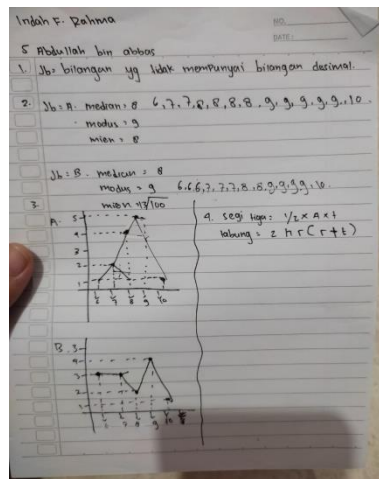 Indah F. Rahma
NO.
DATE:
5 Abdullah bin abbas
1. Jb= bilangan yg tidak mempunyai bilangan desimal.
2. Jb: A. median = 8 6,7,7,8,8,8,8,9,9,9,9,9,10.
modus = 9
mien = 8
Jb: B. median = 8
modus = 9 6,6,6,7,7,7,8,8,9,9,9,9,10.
mien =
3.
A. 5
4
3
2
1
6 7 8 9 10
4. segi tiga = 1/2 x A x t
tabung = 2 π r (r+t)
B. 5
4
3
2
1
6 7 8 9 10